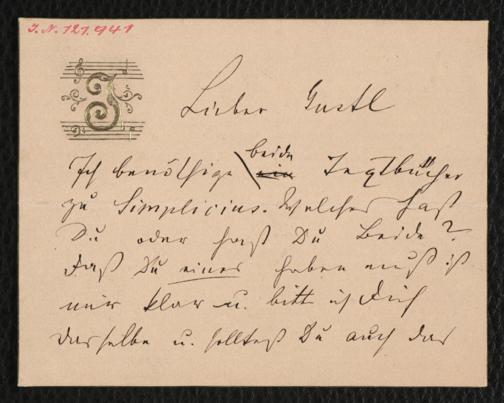 I.N. 121.941
Lieber Gustl
Ich benöthige beide ein Textbücher
zu Simplicius. Welches hast
Du oder hast Du Beide?
Daß Du eines haben mußt ist
mir klar u. bitte ich Dich
dasselbe u. solltest Du auch das